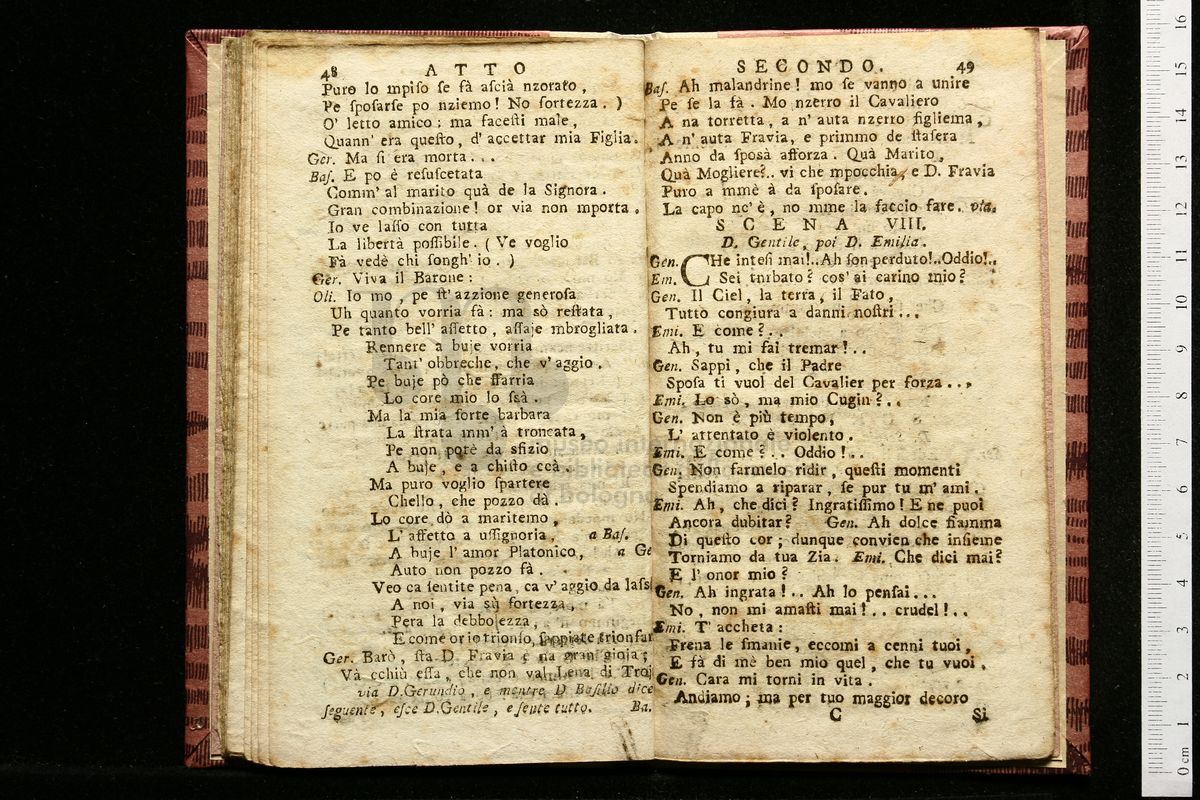 48 ATTO
Puro lo mpiso se fà ascià nzorato,
Pe sposarse po nziemo! No fortezza. )
O' letto amico: ma facesti male,
Quann' era questo, d' accettar mia Figlia.
Ger. Ma si era morta...
Bas. E po è resuscetata
Comm' al marito quà de la Signora.
Gran combinazione! or via non mporta.
Io ve lasso con tutta
La libertà possibile. ( Ve voglio
Fà vedè chi songh' io. )
Ger. Viva il Barone:
Oli. Io mo, pe st' azzione generosa
Uh quanto vorria fà: ma sò restata,
Pe tanto bell' affetto, assaje mbrogliata.
Rennere a buje vorria
Tant' obbreche, che v' aggio.
Pe buje pò che sfarria
Lo core mio lo ssà.
Ma la mia sorte barbara
La strata mm' à troncata,
Pe non potè da sfizio
A buje, e a chisto ccà.
Ma puro voglio spartere
Chello, che pozzo dà.
Lo core dò a maritemo,
L' affetto a ussignoria, a Bas.
A buje l' amor Platonico, a Ge
Auto non pozzo fà.
Veo ca sentite pena, ca v' aggio da lass
A noi, via sù fortezza,
Pera la debbolezza,
E come or io trionfo, sappiate trionfar
Ger. Barò, sta D. Fravia è na gran gioja;
Và cchiù essa, che non val Lena di Troj
via D.Gerundio, e mentre D. Basilio dice
seguente, esce D.Gentile, e sente tutto. Ba.
SECONDO. 49
Bas. Ah malandrine! mo se vanno a unire
Pe se la fà. Mo nzerro il Cavaliero
A na torretta, a n' auta nzerro figliema,
A n' auta Fravia, e primmo de stasera
Anno da sposà afforza. Quà Marito,
Quà Mogliere?.. vi che mpocchia, e D. Fravia
Puro a mmè à da sposare.
La capo nc' è, no mme la faccio fare. via.
SCENA VIII.
D. Gentile, poi D. Emilia.
Gen. CHe intesi mai!..Ah son perduto!..Oddio!..
Em. Sei turbato? cos' ai carino mio?
Gen. Il Ciel, la terra, il Fato,
Tutto congiura a danni nostri...
Emi. E come?..
Ah, tu mi fai tremar!..
Gen. Sappi, che il Padre
Sposa ti vuol del Cavalier per forza...
Emi. Lo sò, ma mio Cugin?..
Gen. Non è più tempo,
L' attentato è violento.
Emi. E come?.. Oddio!..
Gen. Non farmelo ridir, questi momenti
Spendiamo a riparar, se pur tu m' ami.
Emi. Ah, che dici? Ingratissimo! E ne puoi
Ancora dubitar? Gen. Ah dolce fiamma
Di questo cor; dunque convien che insieme
Torniamo da tua Zia. Emi. Che dici mai?
E l' onor mio?
Gen. Ah ingrata!.. Ah lo pensai...
No, non mi amasti mai!.. crudel!..
Emi. T' accheta:
Frena le smanie, eccomi a cenni tuoi,
E fà di mè ben mio quel, che tu vuoi.
Gen. Cara mi torni in vita.
Andiamo; ma per tuo maggior decoro
C Si
0 cm 1 2 3 4 5 6 7 8 9 10 11 12 13 14 15 16